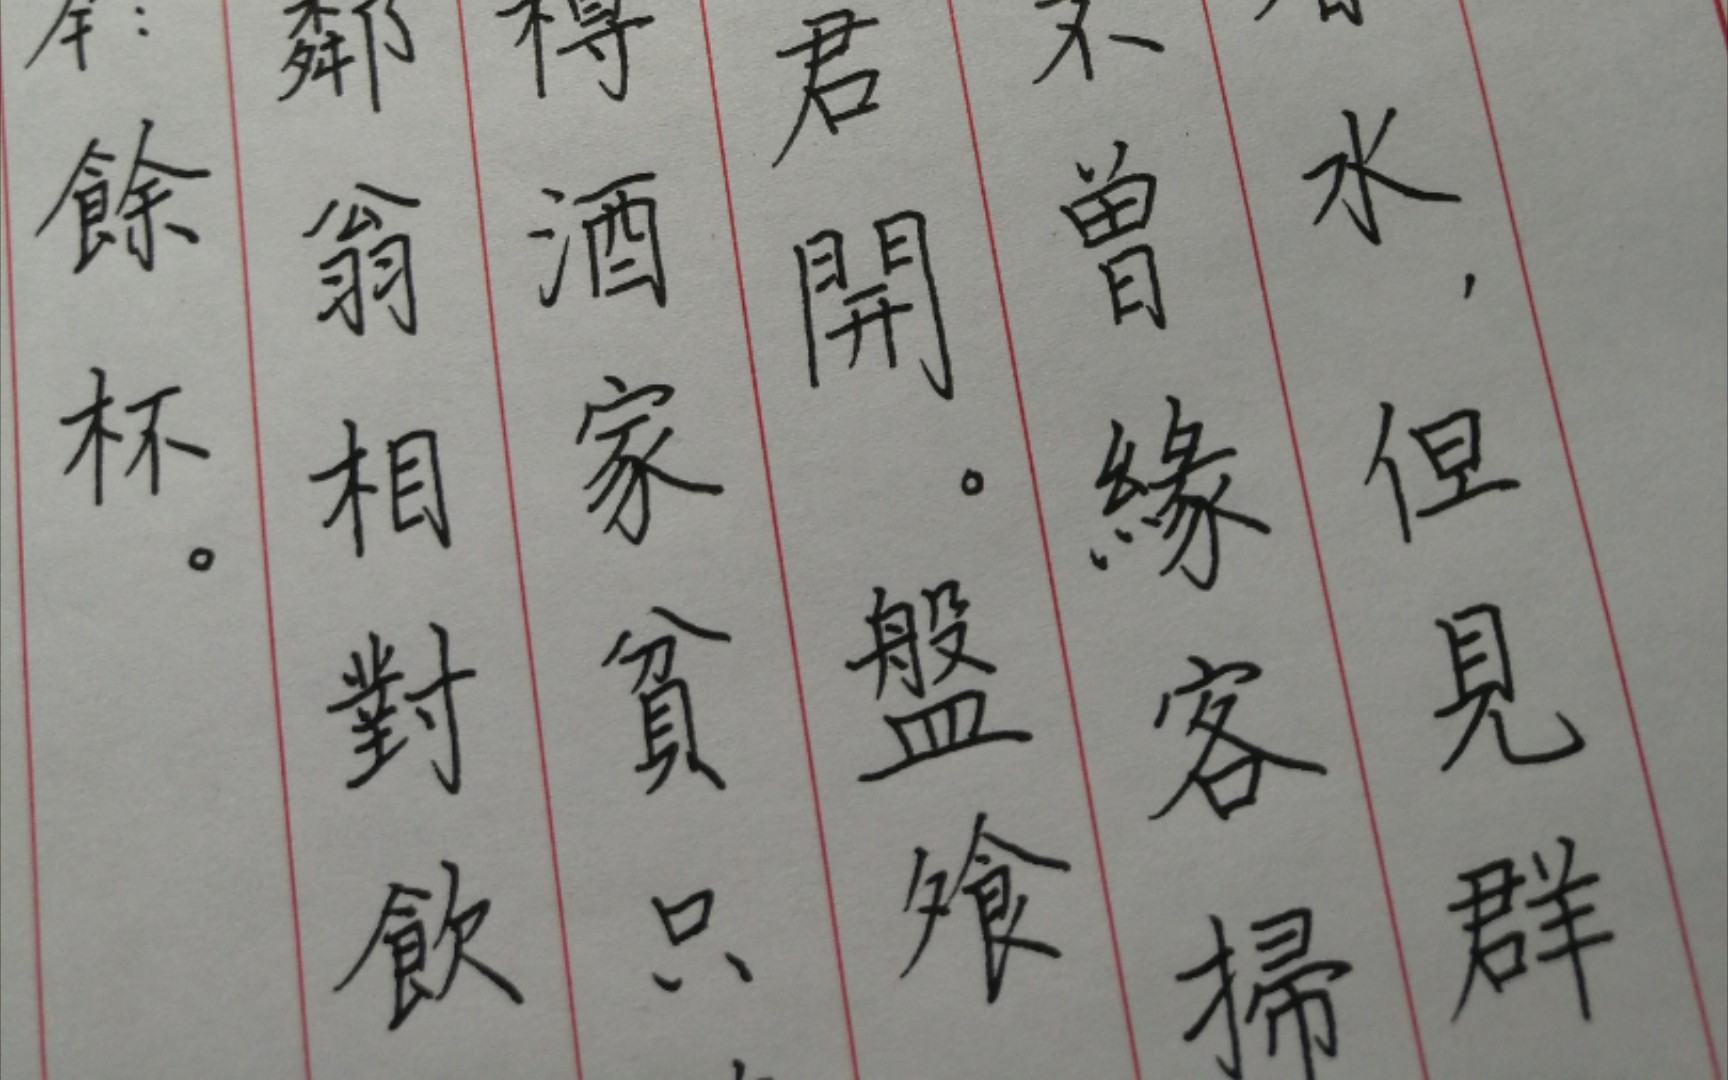 水，但見群
不曾緣客掃
君開。盤飧
樽酒家貧只
鄰翁相對飲
餘杯。